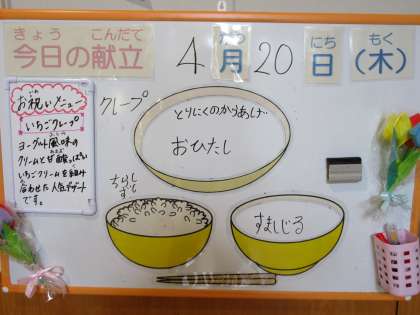 きょう こんだて
今日の献立
4 月 20 日 (木)
がつ にち もく
お祝いメニュー
いちごクレープ
ヨーグルト風味の
クリームと甘酸っぱい
いちごクリームを組み
合わせた人気デザート
です。
クレープ
とりにくのからあげ
おひたし
ちらし
ずし
すましじる